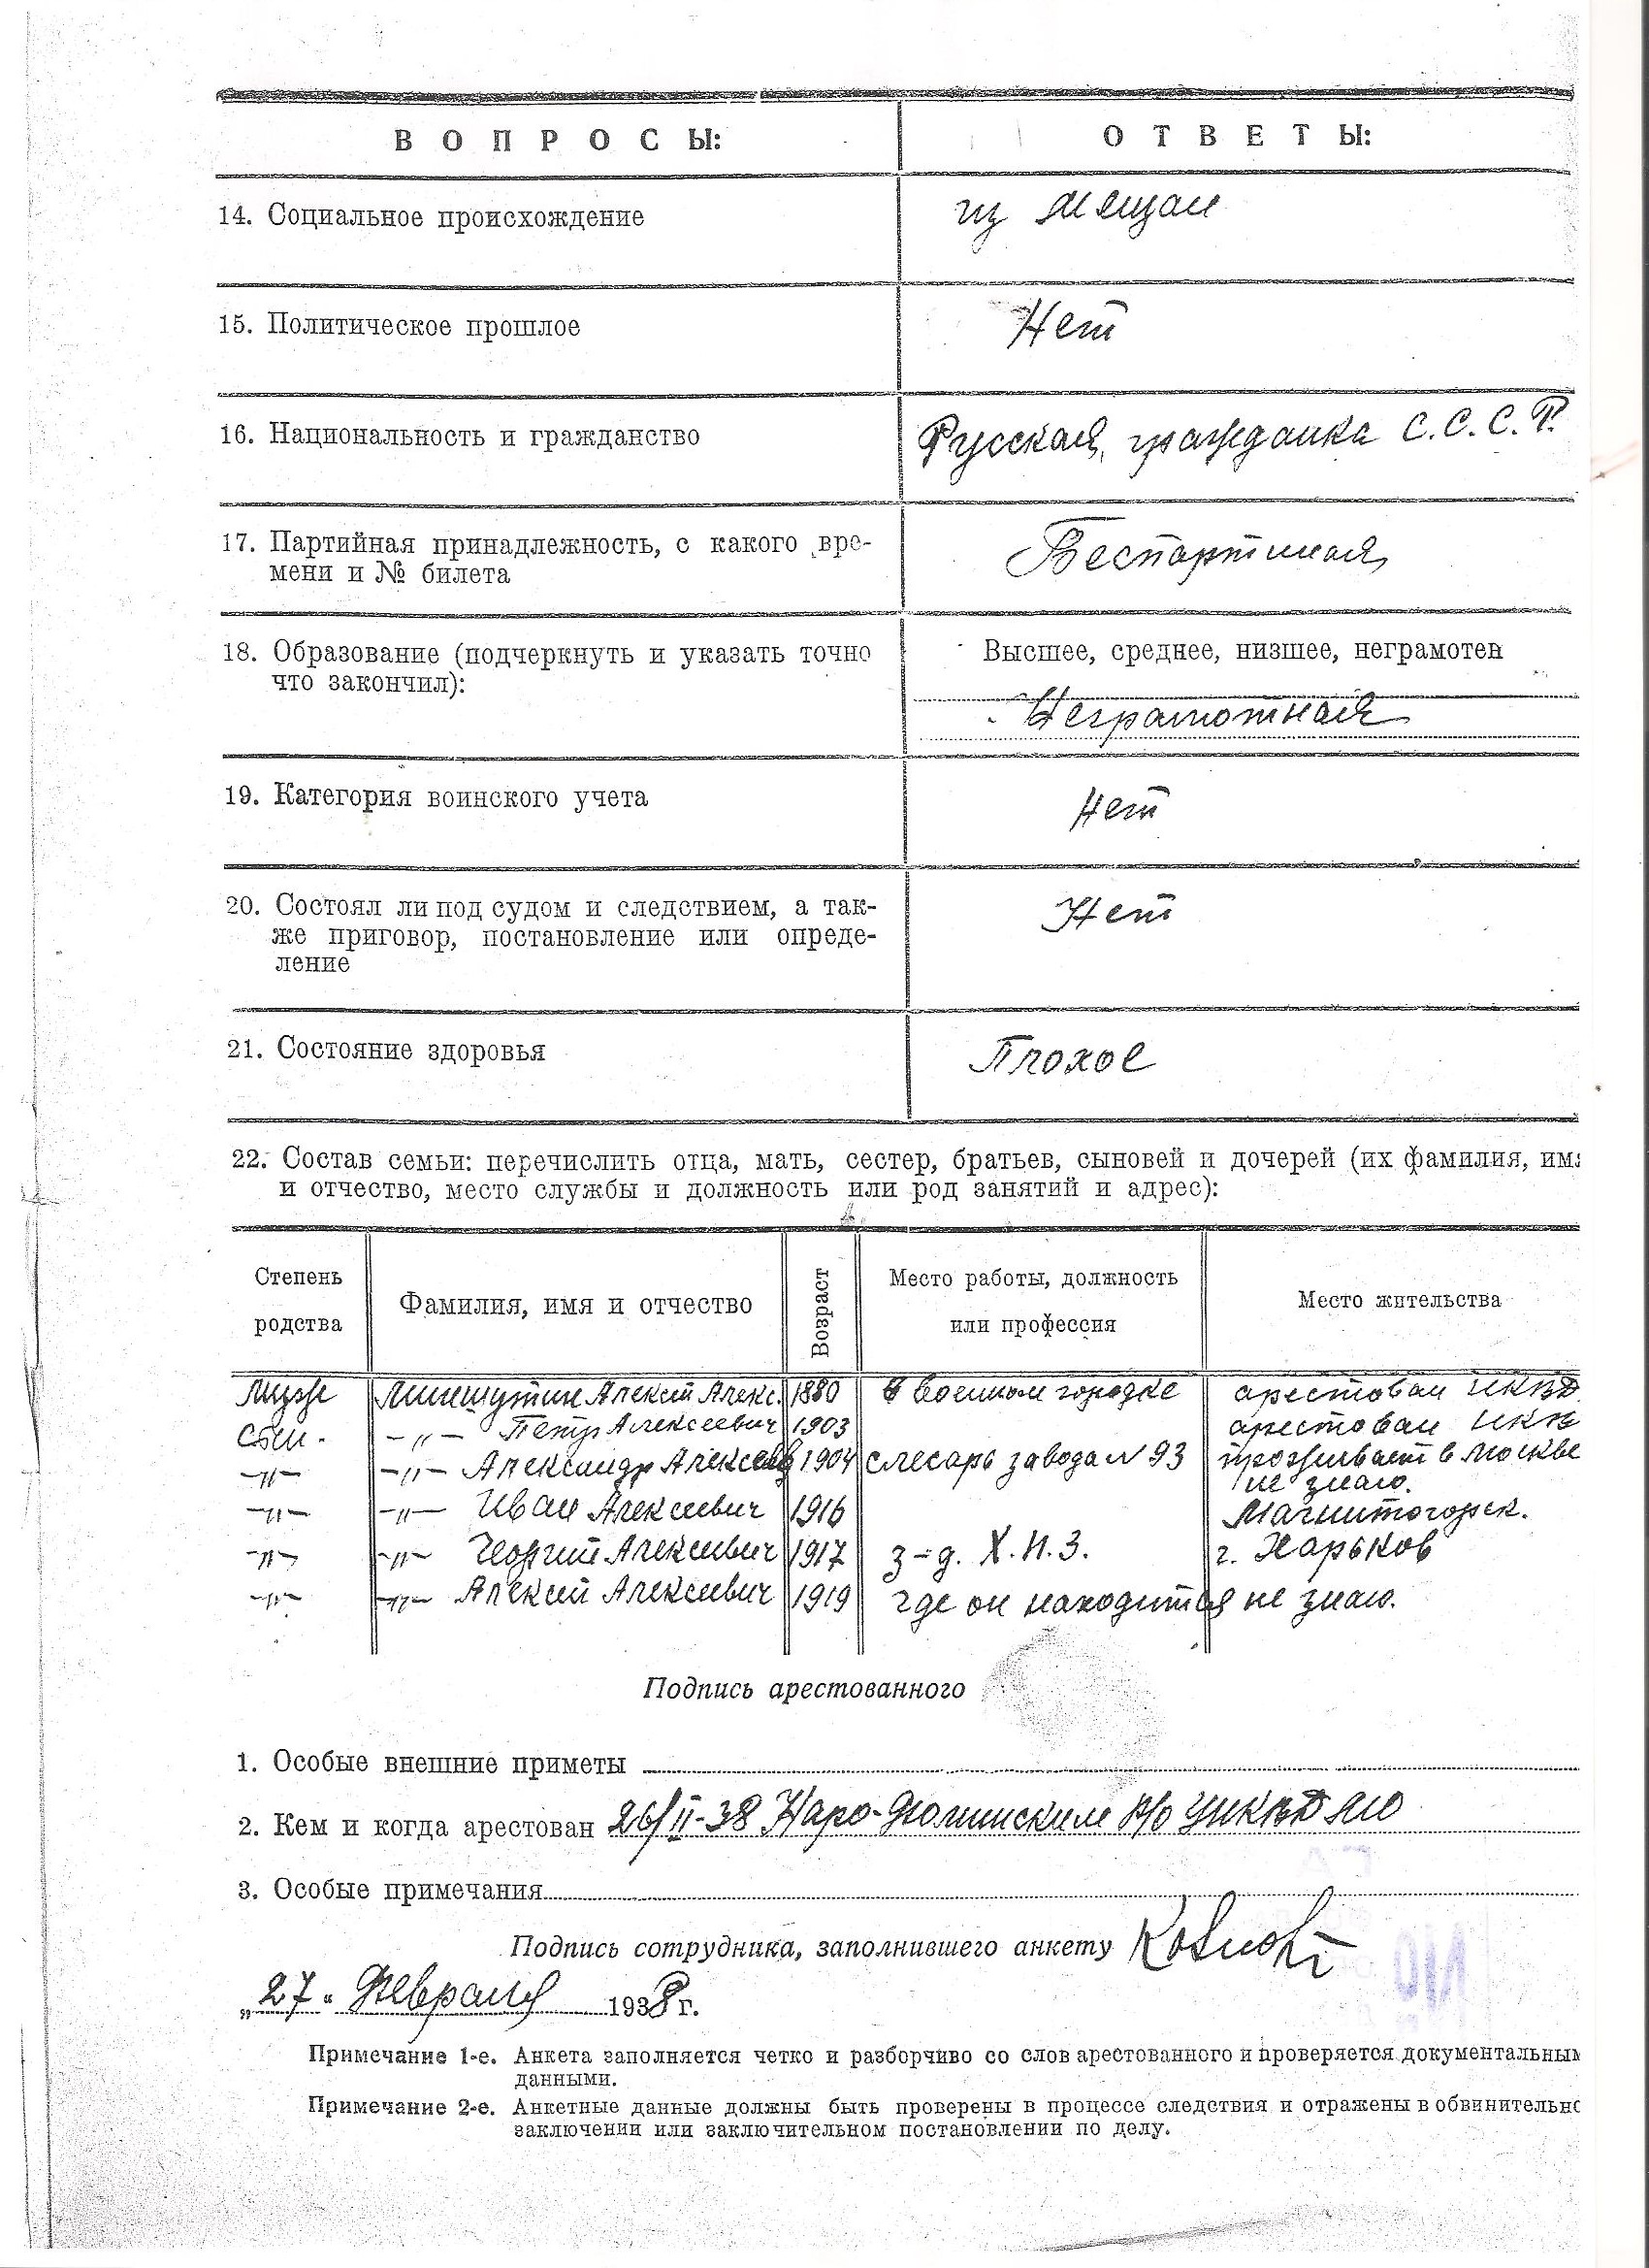 ВОПРОСЫ: ОТВЕТЫ:
14. Социальное происхождение из мещан
15. Политическое прошлое Нет
16. Национальность и гражданство Русская, гражданка С.С.С.Р.
17. Партийная принадлежность, с какого вре-
мени и № билета
Беспартийная
18. Образование (подчеркнуть и указать точно
что закончил):
Высшее, среднее, низшее, неграмотен
Неграмотная
19. Категория воинского учета Нет
20. Состоял ли под судом и следствием, а так-
же приговор, постановление или опреде-
ление
Нет
21. Состояние здоровья Плохое
22. Состав семьи: перечислить отца, мать, сестер, братьев, сыновей и дочерей (их фамилия, имя
и отчество, место службы и должность или род занятий и адрес):
Степень родства
Фамилия, имя и отчество
Возраст
Место работы, должность или профессия
Место жительства
Муж Алексей Алекс. 1880 в Военном городке арестован НКВД
Сын. -"- Петр Алексеевич 1903 арестован НКВ
-"- -"- Александр Алексеев 1904 слесарь завода N 93 проживает в Москве
не знаю.
-"- -"- Иван Алексеевич 1916 Магнитогорск.
-"- -"- Георгий Алексеевич 1917 з-д. Х.П.З. г. Харьков
-"- -"- Алексей Алексеевич 1919 где он находится не знаю.
Подпись арестованного
1. Особые внешние приметы
2. Кем и когда арестован 26/II-38 Наро-Фоминским Р/о УНКВД МО
3. Особые примечания
Подпись сотрудника, заполнившего анкету
„27“ Февраля 1938 г.
Примечание 1-е. Анкета заполняется четко и разборчиво со слов арестованного и проверяется документальным
данными.
Примечание 2-е. Анкетные данные должны быть проверены в процессе следствия и отражены в обвинительно
заключении или заключительном постановлении по делу.